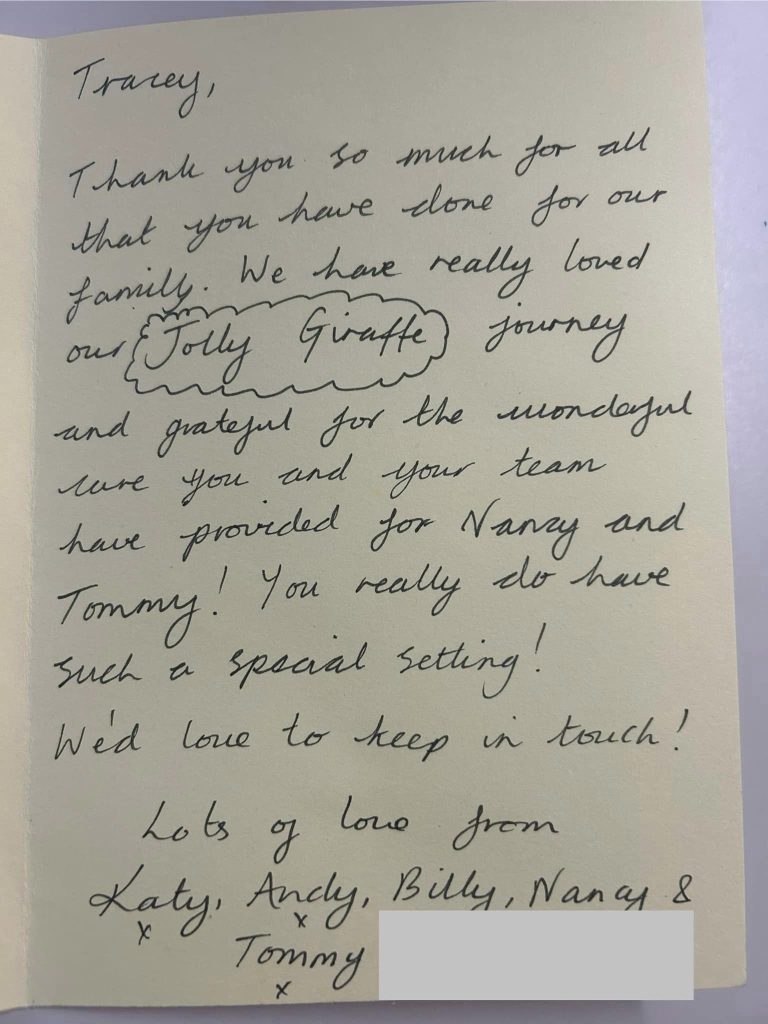 Tracey,
Thank you so much for all
that you have done for our
family. We have really loved
our Jolly Giraffe journey
and grateful for the wonderful
care you and your team
have provided for Nancy and
Tommy! You really do have
such a special setting!
We'd love to keep in touch!
Lots of love from
Katy, Andy, Billy, Nancy &
x x
Tommy
x